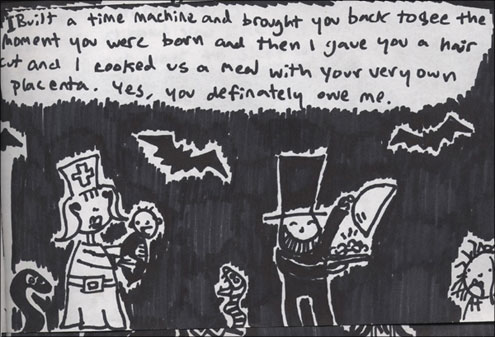 I Built a time machine and brought you back to see the
moment you were born and then I gave you a hair
cut and I cooked us a meal with your very own
placenta. Yes, you definately owe me.